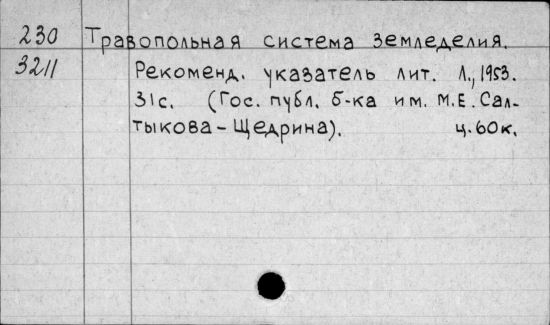 230 Травопольная система земледелия.
3211 Рекоменд. указатель лит. Л., 1953.
31с. (Гос. публ. б-ка им. М.Е. Сал-
тыкова-Щедрина). ц. 60к.